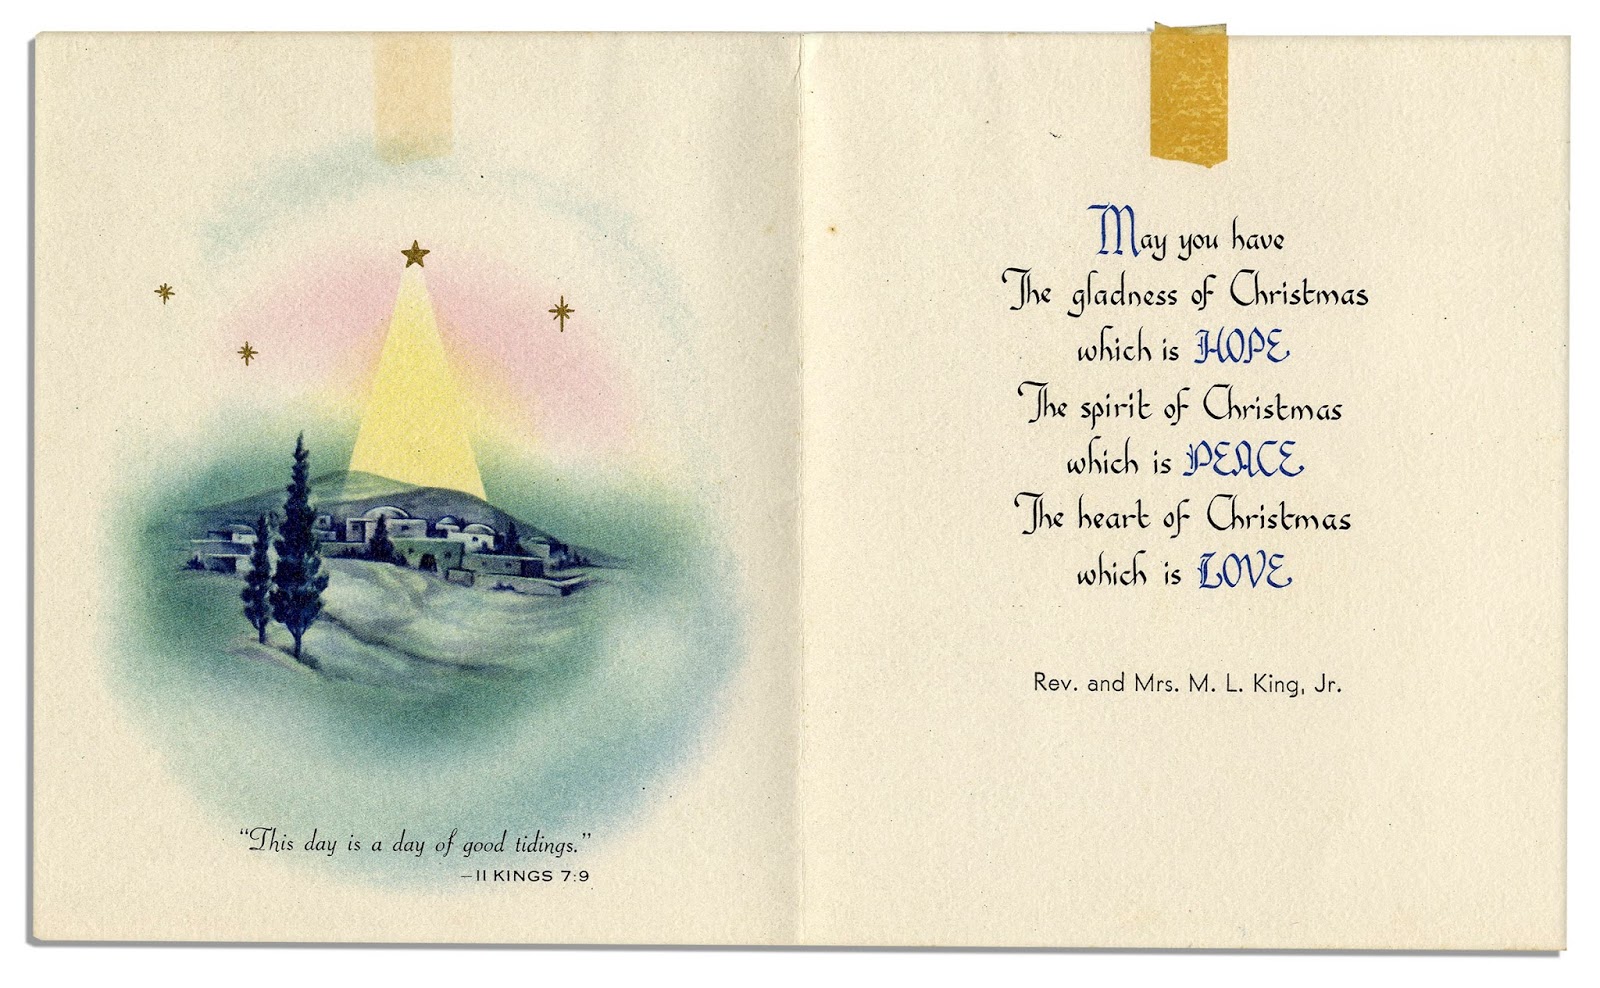 “This day is a day of good tidings.”
—II KINGS 7:9
May you have
The gladness of Christmas
which is HOPE
The spirit of Christmas
which is PEACE
The heart of Christmas
which is LOVE
Rev. and Mrs. M. L. King, Jr.